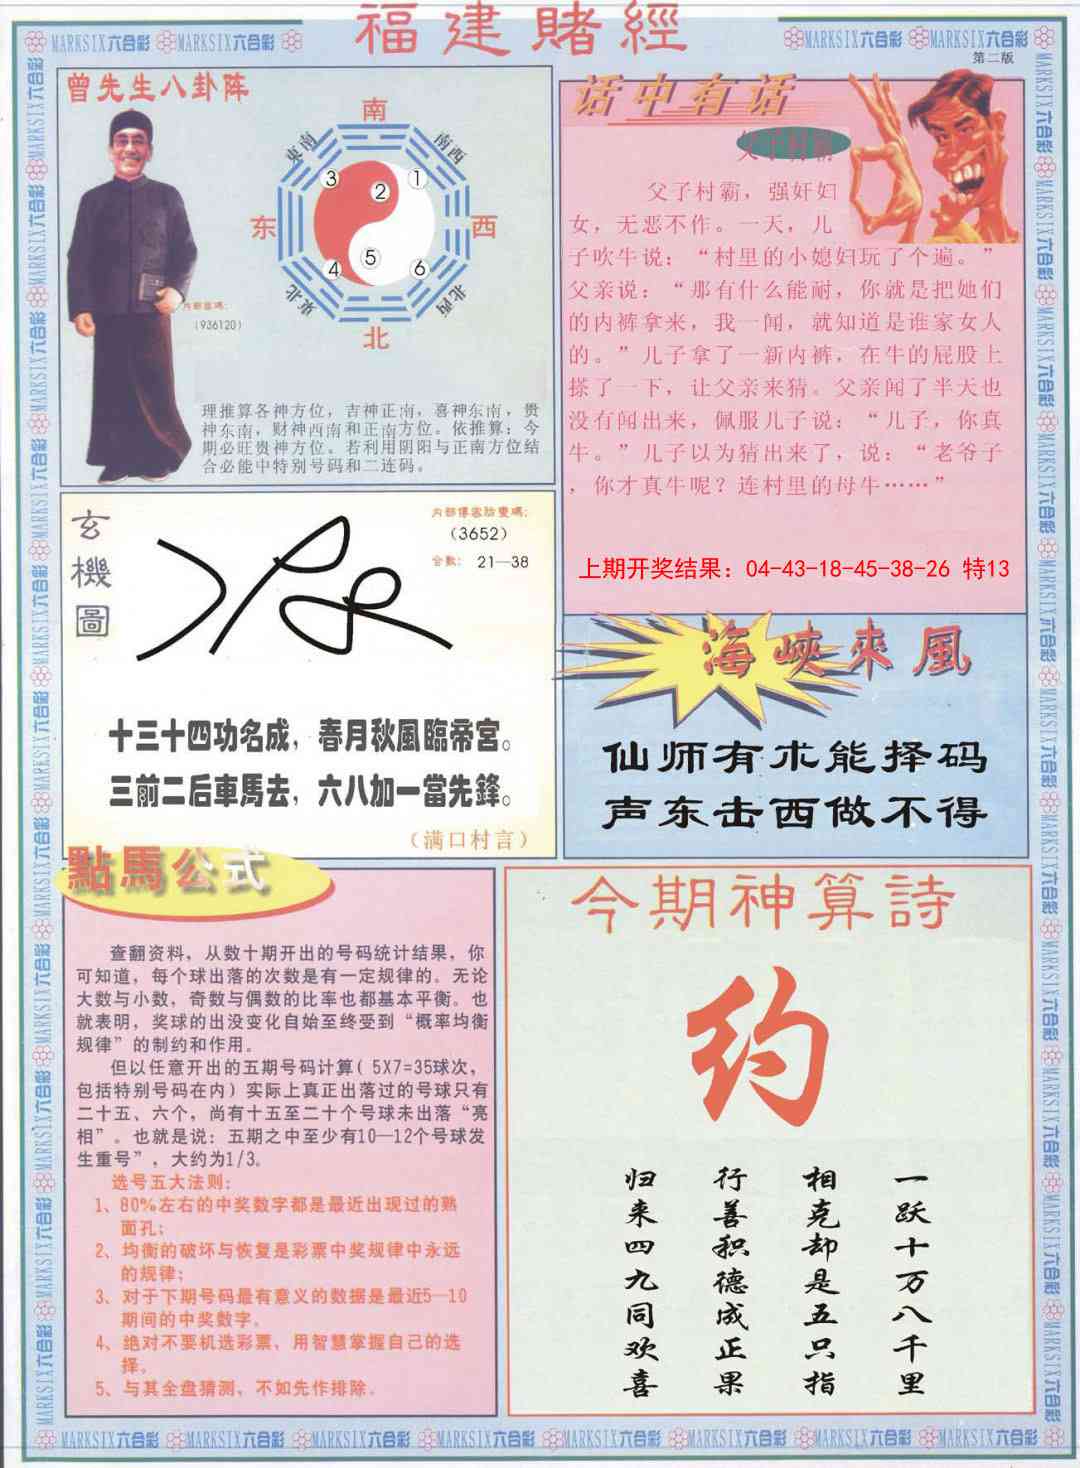 福建賭經
MARKSIX六合彩 MARKSIX六合彩
MARKSIX六合彩 MARKSIX六合彩
第二版
曾先生八卦阵
南
東南
南西
3
2
1
东
西
5
4
6
東北
北西
北
内部密碼:
(936120)
理推算各神方位，吉神正南，喜神东南，贵
神东南，财神西南和正南方位。依推算：今
期必旺贵神方位。若利用阴阳与正南方位结
合必能中特别号码和二连码。
话中有话
父子村霸
父子村霸，强奸妇
女，无恶不作。一天，儿
子吹牛说：“村里的小媳妇玩了个遍。”
父亲说：“那有什么能耐，你就是把她们
的内裤拿来，我一闻，就知道是谁家女人
的。”儿子拿了一新内裤，在牛的屁股上
搽了一下，让父亲来猜。父亲闻了半天也
没有闻出来，佩服儿子说：“儿子，你真
牛。”儿子以为猜出来了，说：“老爷子
，你才真牛呢？连村里的母牛……”
上期开奖结果：04-43-18-45-38-26 特13
玄機圖
内部傳密
(3652)
合數: 21—38
十三十四功名成，春月秋風臨帝宮。
三前二后車馬去，六八加一當先鋒。
(满口村言)
海峽來風
仙师有术能择码
声东击西做不得
點馬公式
查翻资料，从数十期开出的号码统计结果，你
可知道，每个球出落的次数是有一定规律的。无论
大数与小数，奇数与偶数的比率也都基本平衡。也
就表明，奖球的出没变化自始至终受到“概率均衡
规律”的制约和作用。
但以任意开出的五期号码计算( 5X7=35球次，
包括特别号码在内）实际上真正出落过的号球只有
二十五、六个，尚有十五至二十个号球未出落“亮
相”。也就是说：五期之中至少有10—12个号球发
生重号”，大约为1/3。
选号五大法则:
1、80%左右的中奖数字都是最近出现过的熟
面孔;
2、均衡的破坏与恢复是彩票中奖规律中永远
的规律;
3、对于下期号码最有意义的数据是最近5—10
期间的中奖数字。
4、绝对不要机选彩票，用智慧掌握自己的选
择。
5、与其全盘猜测，不如先作排除。
今期神算詩
约
一跃十万八千里
相克却是五只指
行善积德成正果
归来四九同欢喜
MARKSIX六合彩 MARKSIX六合彩 MARKSIX六合彩 MARKSIX六合彩 MARKSIX六合彩 MARKSIX六合彩 MARKSIX六合彩 MARKSIX六合彩